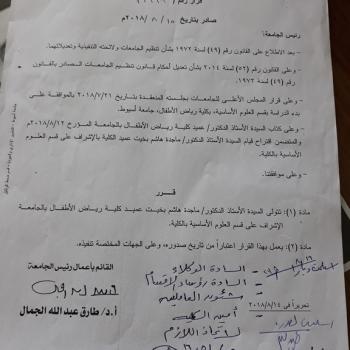 قرار رقم (
صادر بتاريخ ١٥ / ٨ / ٢٠١٨م
رئيس الجامعة:
- بعد الاطلاع على القانون رقم (٤٩) لسنة ١٩٧٢ بشأن تنظيم الجامعات ولائحته التنفيذية وتعديلاتهما.
- وعلى القانون رقم (٥٢) لسنة ٢٠١٤ بشأن تعديل أحكام قانون تنظيم الجامعات الصادر بالقانون
رقم (٤٩) لسنة ١٩٧٢.
- وعلى قرار المجلس الأعلى للجامعات بجلسته المنعقدة بتاريخ ٢٠١٨/٧/٢١ بالموافقة على
بدء الدراسة بقسم العلوم الأساسية، بكلية رياض الأطفال، جامعة أسيوط.
- وعلى كتاب السيدة الأستاذ الدكتور/ عميد كلية رياض الأطفال بالجامعة المؤرخ ٢٠١٨/٨/١٢م
والمتضمن اقتراح قيام السيدة الأستاذ الدكتور/ ماجدة هاشم بخيت عميد الكلية بالإشراف على قسم العلوم
الأساسية بالكلية.
- وعلى موافقتنا.
قـــرر
مادة (١): تتولى السيدة الأستاذ الدكتور/ ماجدة هاشم بخيت عميد كلية رياض الأطفال بالجامعة
الإشراف على قسم العلوم الأساسية بالكلية.
مادة (٢): يعمل بهذا القرار اعتباراً من تاريخ صدوره، وعلى الجهات المختصة تنفيذه.
القائم بأعمال رئيس الجامعة
السادة الوكلاء
السادة رؤساء الأقسام
شئون العاملين
تحريراً في ٢٠١٨/٨/١٤
أمين الكلية
أ.د/ طارق عبدالله الجمال
لاتخاذ اللازم